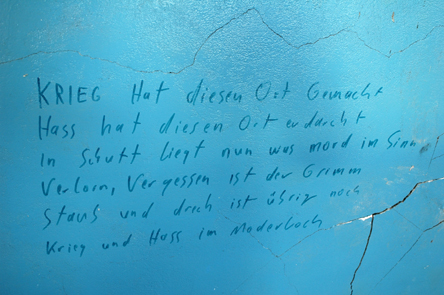 KRIEG Hat diesen Ort Gemacht
Hass hat diesen Ort erdarcht
In Schutt liegt nun was mord im Sinn
Verlorn, Vergessen ist der Grimm
Staub und drech ist übrig noch
Krieg und Hass im Moderloch